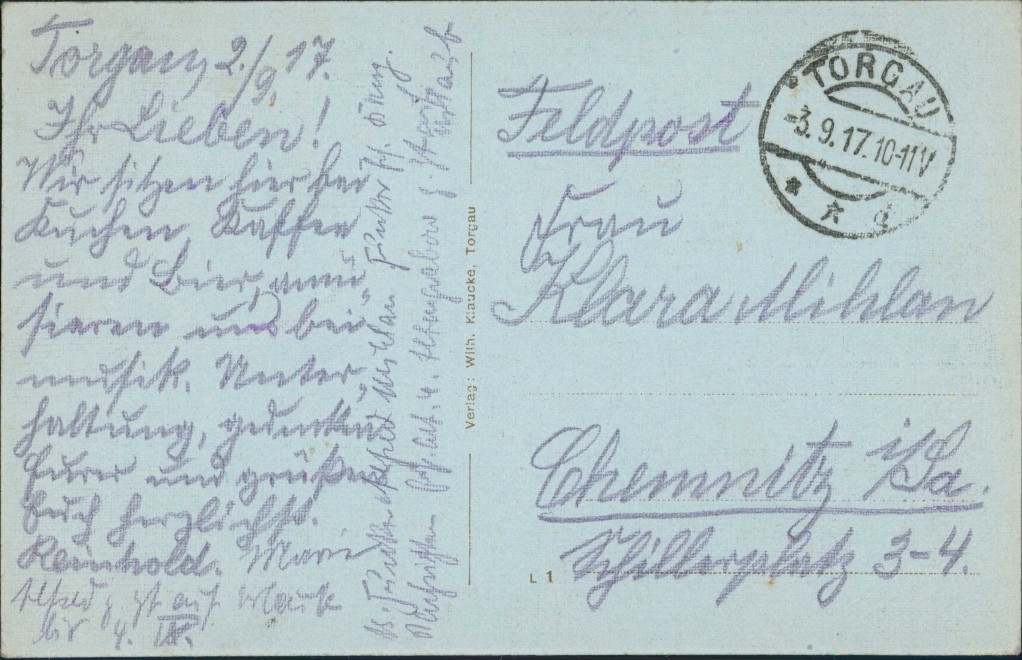 Torgau, 2./9. 17.
Ihr Lieben!
Wir sitzen hier bei
Kuchen, Kaffee
und Bier, amü-
sieren uns bei
musik. Unter-
haltung, gedenken
Eurer und grüßen
Euch herzlichst.
Reinhold. Marie
Alfred z. Zt. auf Urlaub
bis 4. IX.
Verlag: Wilh. Klaucke, Torgau
L 1
TORGAU
-3.9.17.10-11V
* * d
Feldpost
Frau
Klara Mihlan
Chemnitz i/Sa.
Schillerplatz 3-4.